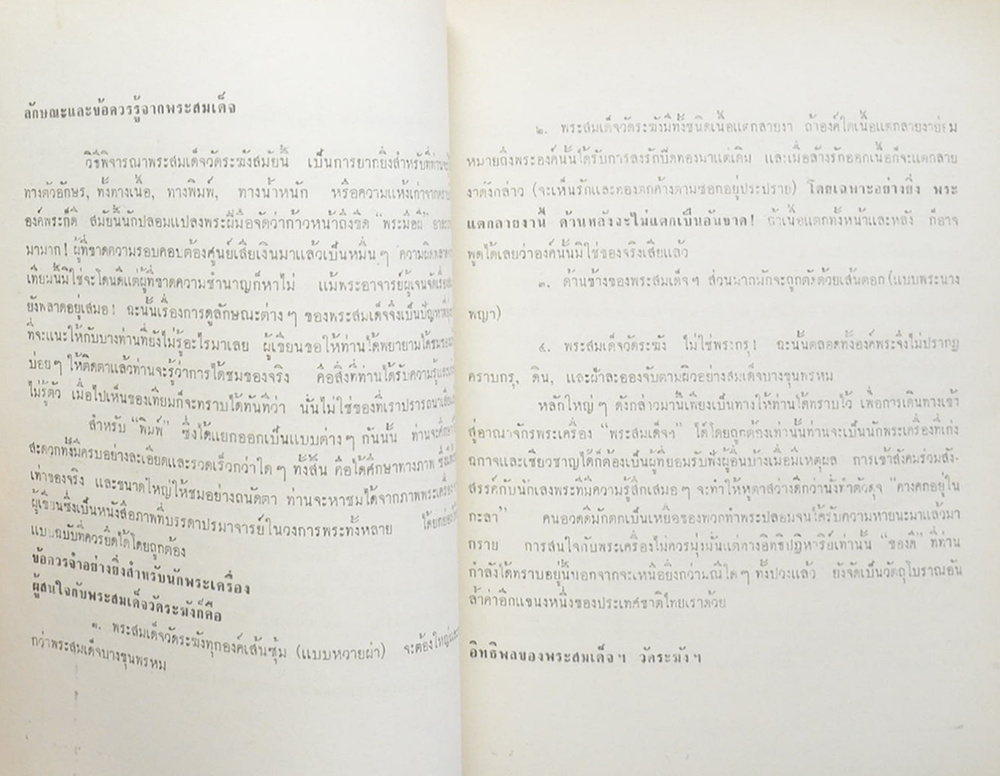 ลักษณะและข้อควรรู้จากพระสมเด็จ
วิธีพิจารณาพระสมเด็จวัดระฆังสมัยนี้ เป็นการยากยิ่งสำหรับที่ท่านจะ
ทางตัวอักษร, ทั้งทางเนื้อ, ทางพิมพ์, ทางน้ำหนัก หรือความแห้งเก่าจากความ
องค์พระก็ดี สมัยนี้นักปลอมแปลงพระฝีมือจัดว่าก้าวหน้าถึงขีด "พระมือผี"
มามาก! ผู้ที่ขาดความรอบคอบต้องศูนย์เสียเงินมาแล้วเป็นหมื่นๆ ความผิดพลาด
เทียมนี้มิใช่จะโดนดีแต่ผู้ที่ขาดความชำนาญก็หาไม่ แม้พระอาจารย์ผู้เจนจัด
ยังพลาดอยู่เสมอ! ฉะนั้นเรื่องการดูลักษณะต่างๆ ของพระสมเด็จจึงเป็นปัญหา
ที่จะแนะให้กับบางท่านที่ยังไม่รู้อะไรมาเลย ผู้เขียนขอให้ท่านได้พยายามได้ชม
บ่อยๆ ให้ติดตาแล้วท่านจะรู้ว่าการได้ชมของจริง คือสิ่งที่ท่านได้รับความรู้
ไม่รู้ตัว เมื่อไปเห็นของเทียมก็จะทราบได้ทันทีว่า นั่นไม่ใช่ของที่เราปรารถนา
สำหรับ "พิมพ์" ซึ่งได้แยกออกเป็นแบบต่างๆ กันนั้น ท่านจะศึกษา
สะดวกทั้งมีครบอย่างละเอียดและรวดเร็วกว่าใดๆ ทั้งสิ้น คือได้ศึกษาทางภาพ
เท่าของจริง และขนาดใหญ่ให้ชมอย่างถนัดตา ท่านจะหาชมได้จากภาพพระเครื่อง
ผู้เขียนซึ่งเป็นหนังสือภาพที่บรรดาปรมาจารย์ในวงการพระทั้งหลาย
แบบฉบับที่ควรยึดได้โดยถูกต้อง
ข้อควรจำอย่างยิ่งสำหรับนักพระเครื่อง
ผู้สนใจกับพระสมเด็จวัดระฆังก็คือ
๑. พระสมเด็จวัดระฆังทุกองค์เส้นซุ้ม (แบบหวายผ่า) จะต้องใหญ่และ
กว่าพระสมเด็จบางขุนพรหม
๒. พระสมเด็จวัดระฆังมีทั้งชนิดเนื้อแตกลายงา ถ้าองค์ใดเนื้อแตกลายงาย่อม
หมายถึงพระองค์นั้นได้รับการลงรักปิดทองมาแต่เดิม และเมื่อล้างรักออกเนื้อก็จะแตกลาย
งาดังกล่าว (จะเห็นรักและทองตกค้างตามซอกอยู่ประปราย) โดยเฉพาะอย่างยิ่ง พระ
แตกลายงานี้ ด้านหลังจะไม่แตกเป็นอันขาด! ถ้าเนื้อแตกทั้งหน้าและหลัง ก็อาจ
พูดได้เลยว่าองค์นั้นมิใช่ของจริงเสียแล้ว
๓. ด้านข้างของพระสมเด็จฯ ส่วนมากมักจะถูกตัดด้วยเส้นตอก (แบบพระนาง
พญา)
๔. พระสมเด็จวัดระฆัง ไม่ใช่พระกรุ! ฉะนั้นตลอดทั้งองค์พระจึงไม่ปรากฏ
คราบกรุ, ดิน, และฝ้าละอองจับตามผิวอย่างสมเด็จบางขุนพรหม
หลักใหญ่ๆ ดังกล่าวมานี้เพียงเป็นทางให้ท่านได้ทราบไว้ เพื่อการเดินทางเข้า
สู่อาณาจักรพระเครื่อง "พระสมเด็จฯ" ได้โดยถูกต้องเท่านั้นท่านจะเป็นนักพระเครื่องที่เก่ง
ฉกาจและเชี่ยวชาญได้ก็ต้องเป็นผู้ที่ยอมรับฟังผู้อื่นบ้างเมื่อมีเหตุผล การเข้าสังคมร่วมสัง-
สรรค์กับนักเลงพระที่มีความรู้สึกเสมอๆ จะทำให้หูตาสว่างดีกว่านั่งทำตัวดุจ "คางคกอยู่ใน
กะลา" คนอวดดีมักตกเป็นเหยื่อของพวกทำพระปลอมจนได้รับความหายนะมาแล้วมา
กราย การสนใจกับพระเครื่องไม่ควรมุ่งมั่นแต่ทางอิทธิปฏิหาริย์เท่านั้น "ของดี" ที่ท่าน
กำลังได้ทราบอยู่นี้นอกจากจะเหนือยิ่งกว่ามณีใดๆ ทั้งปวงแล้ว ยังจัดเป็นวัตถุโบราณอัน
ล้ำค่าอีกแขนงหนึ่งของประเทศชาติไทยเราด้วย
อิทธิพลของพระสมเด็จฯ วัดระฆังฯ